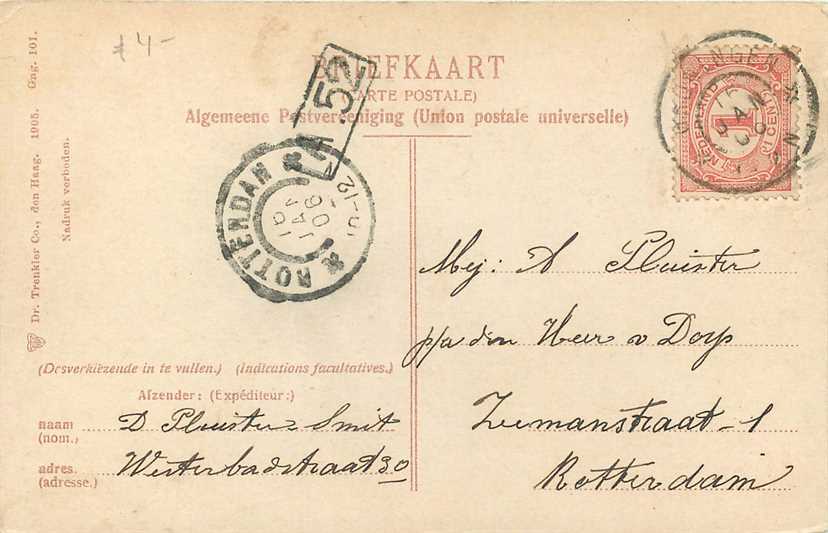 £4-
BRIEFKAART
(CARTE POSTALE)
Algemeene Postvereeniging (Union postale universelle)
52
ROTTERDAM
16
JAN
06
NEDERLAND
1
CENT
Dr. Trenkler Co., den Haag. 1905. Gng. 101.
Nadruk verboden.
Mej: A Pluister
p/a den Heer v Dorp
Zeemanstraat - 1
Rotterdam
(Desverkiezende in te vullen.) (Indications facultatives.)
Afzender: (Expéditeur:)
naam D Pluister Smit
(nom.)
adres. Westerbadstraat 30
(adresse.)